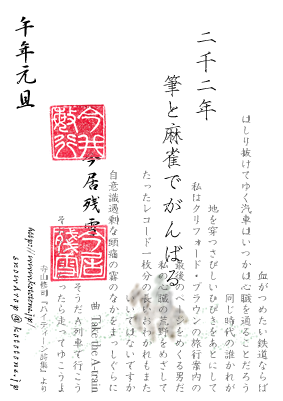 二千二年
筆と麻雀でがんばる
今居残雪
午年元旦
血がつめたい鉄道ならば
はしり抜けてゆく汽車はいつかは心臓を通ることだろう
同じ時代の誰かが
地を穿つさびしいひびきをあとにして
私はクリフォード・ブラウンの旅行案内の
最後のページをめくる男だ
私の心臓の荒野をめざして
たったレコード一枚分の長いおわかれもまた
いいではないですか
自意識過剰な頭痛の霧のなかをまっしぐらに
曲 Take the A-train
そうだA列車で行こう
そ ったら走ってゆこうよ
寺山修司『ハイティーン詩集』より
http://www.kototone.jp/
snowdrop@kototone.jp